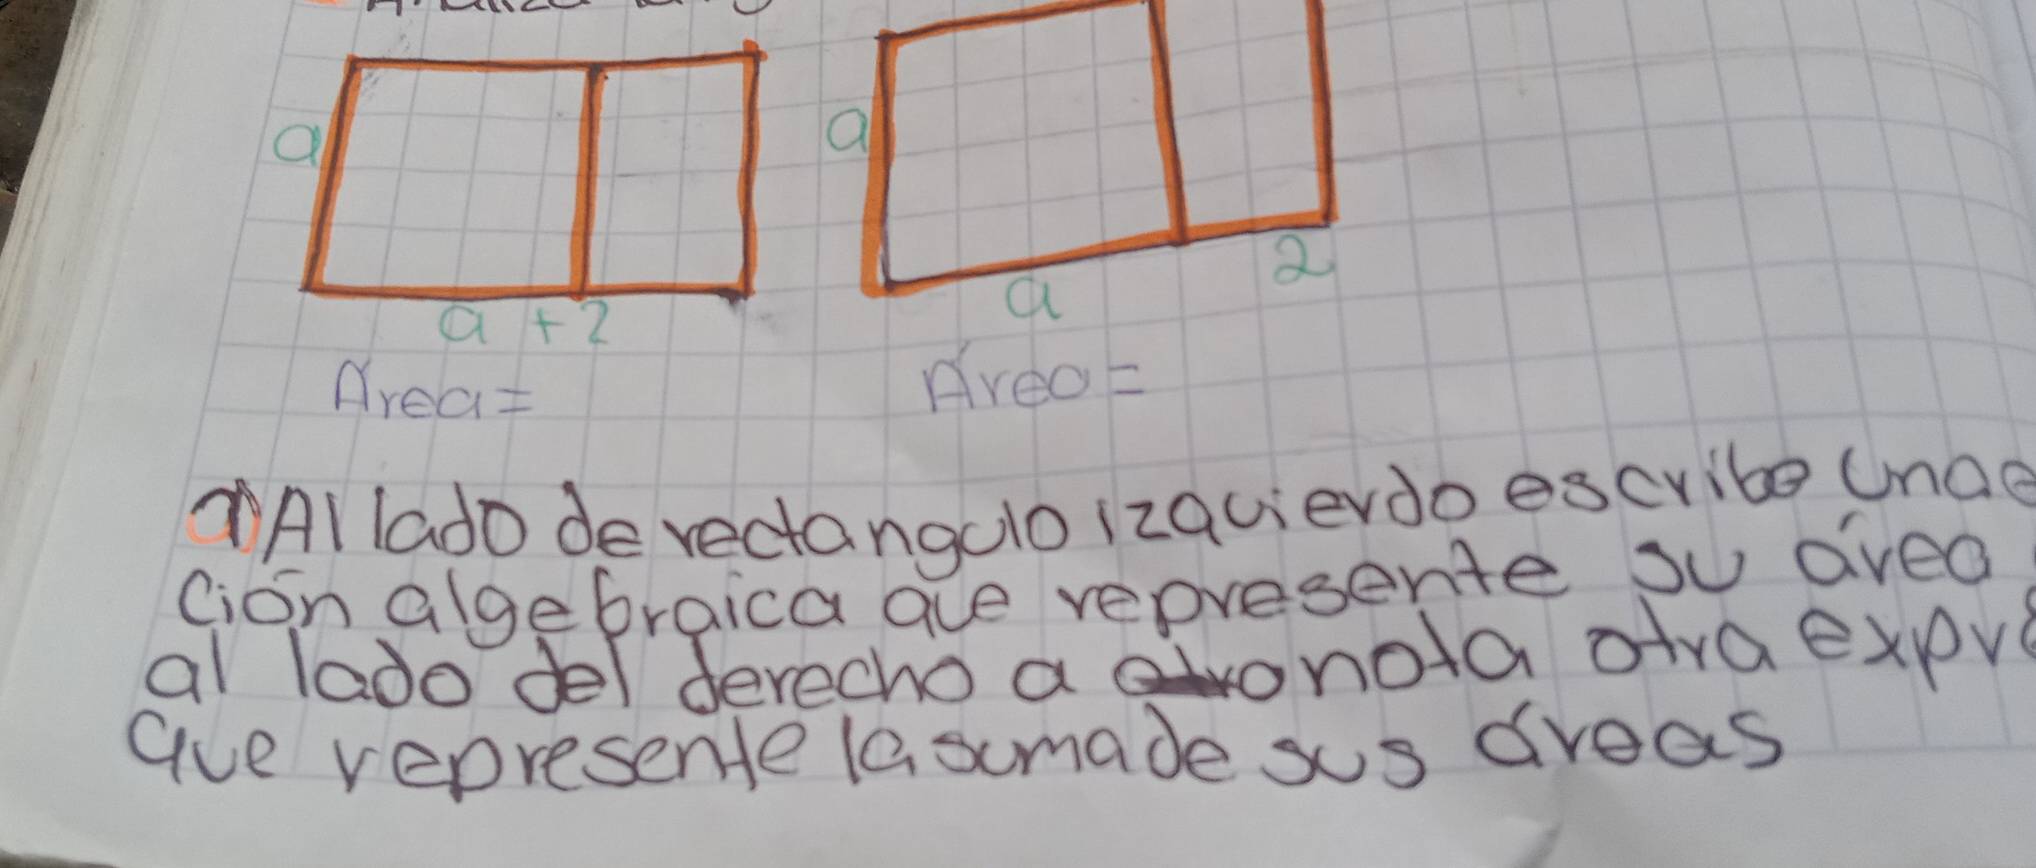 a
a
a + 2
a
2
Área=
Área=
a) Al lado de rectangulo izquierdo escribe una e
ción algebraica que represente su área
al lado del derecho a nota otra expre
que represente la suma de sus áreas